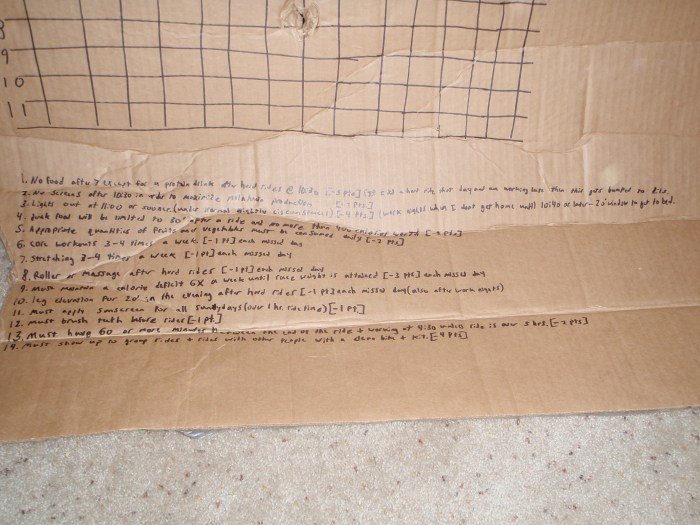 8
9
10
11
1. No food after 7 except for a protein drink after hard rides @ 10:30 [-2 pts] If I did a hard ride that day and am working late then this gets bumped to
2. No screens after 10:30 in order to maximize melatonin production [-3 pts]
3. Lights out at 11:00 or sooner. (under normal circumstances) [-4 pts] (work nights when I dont get home until 10:40 or later - 20' window to get to bed.
4. Junk food will be limited to 30' after a ride and no more then 400 calories worth [-2 pts]
5. Appropriate quantities of fruits and vegetables must be consumed daily [-2 pts]
6. Core workouts 3-4 times a week. [-1 pt] each missed day
7. Stretching 3-4 times a week [-1 pt] each missed day
8. Roller or massage after hard rides [-1 pt] each missed day
9. Must maintain a calorie deficit 6X a week until race weight is attained [-3 pts] each missed day
10. leg elevation for 20' in the evening after hard rides [-1 pt] each missed day (also after work nights)
11. Must apply sunscreen for all sunny days (over 1 hr. ride time) [-1 pt]
12. must brush teeth before rides [-1 pt]
13. Must have 60 or more minutes between the end of the ride + working at 4:30 unless ride is over 5 hrs. [-2 pts]
14. Must show up to group rides + rides with other people with a clean bike + kit. [-4 pts]